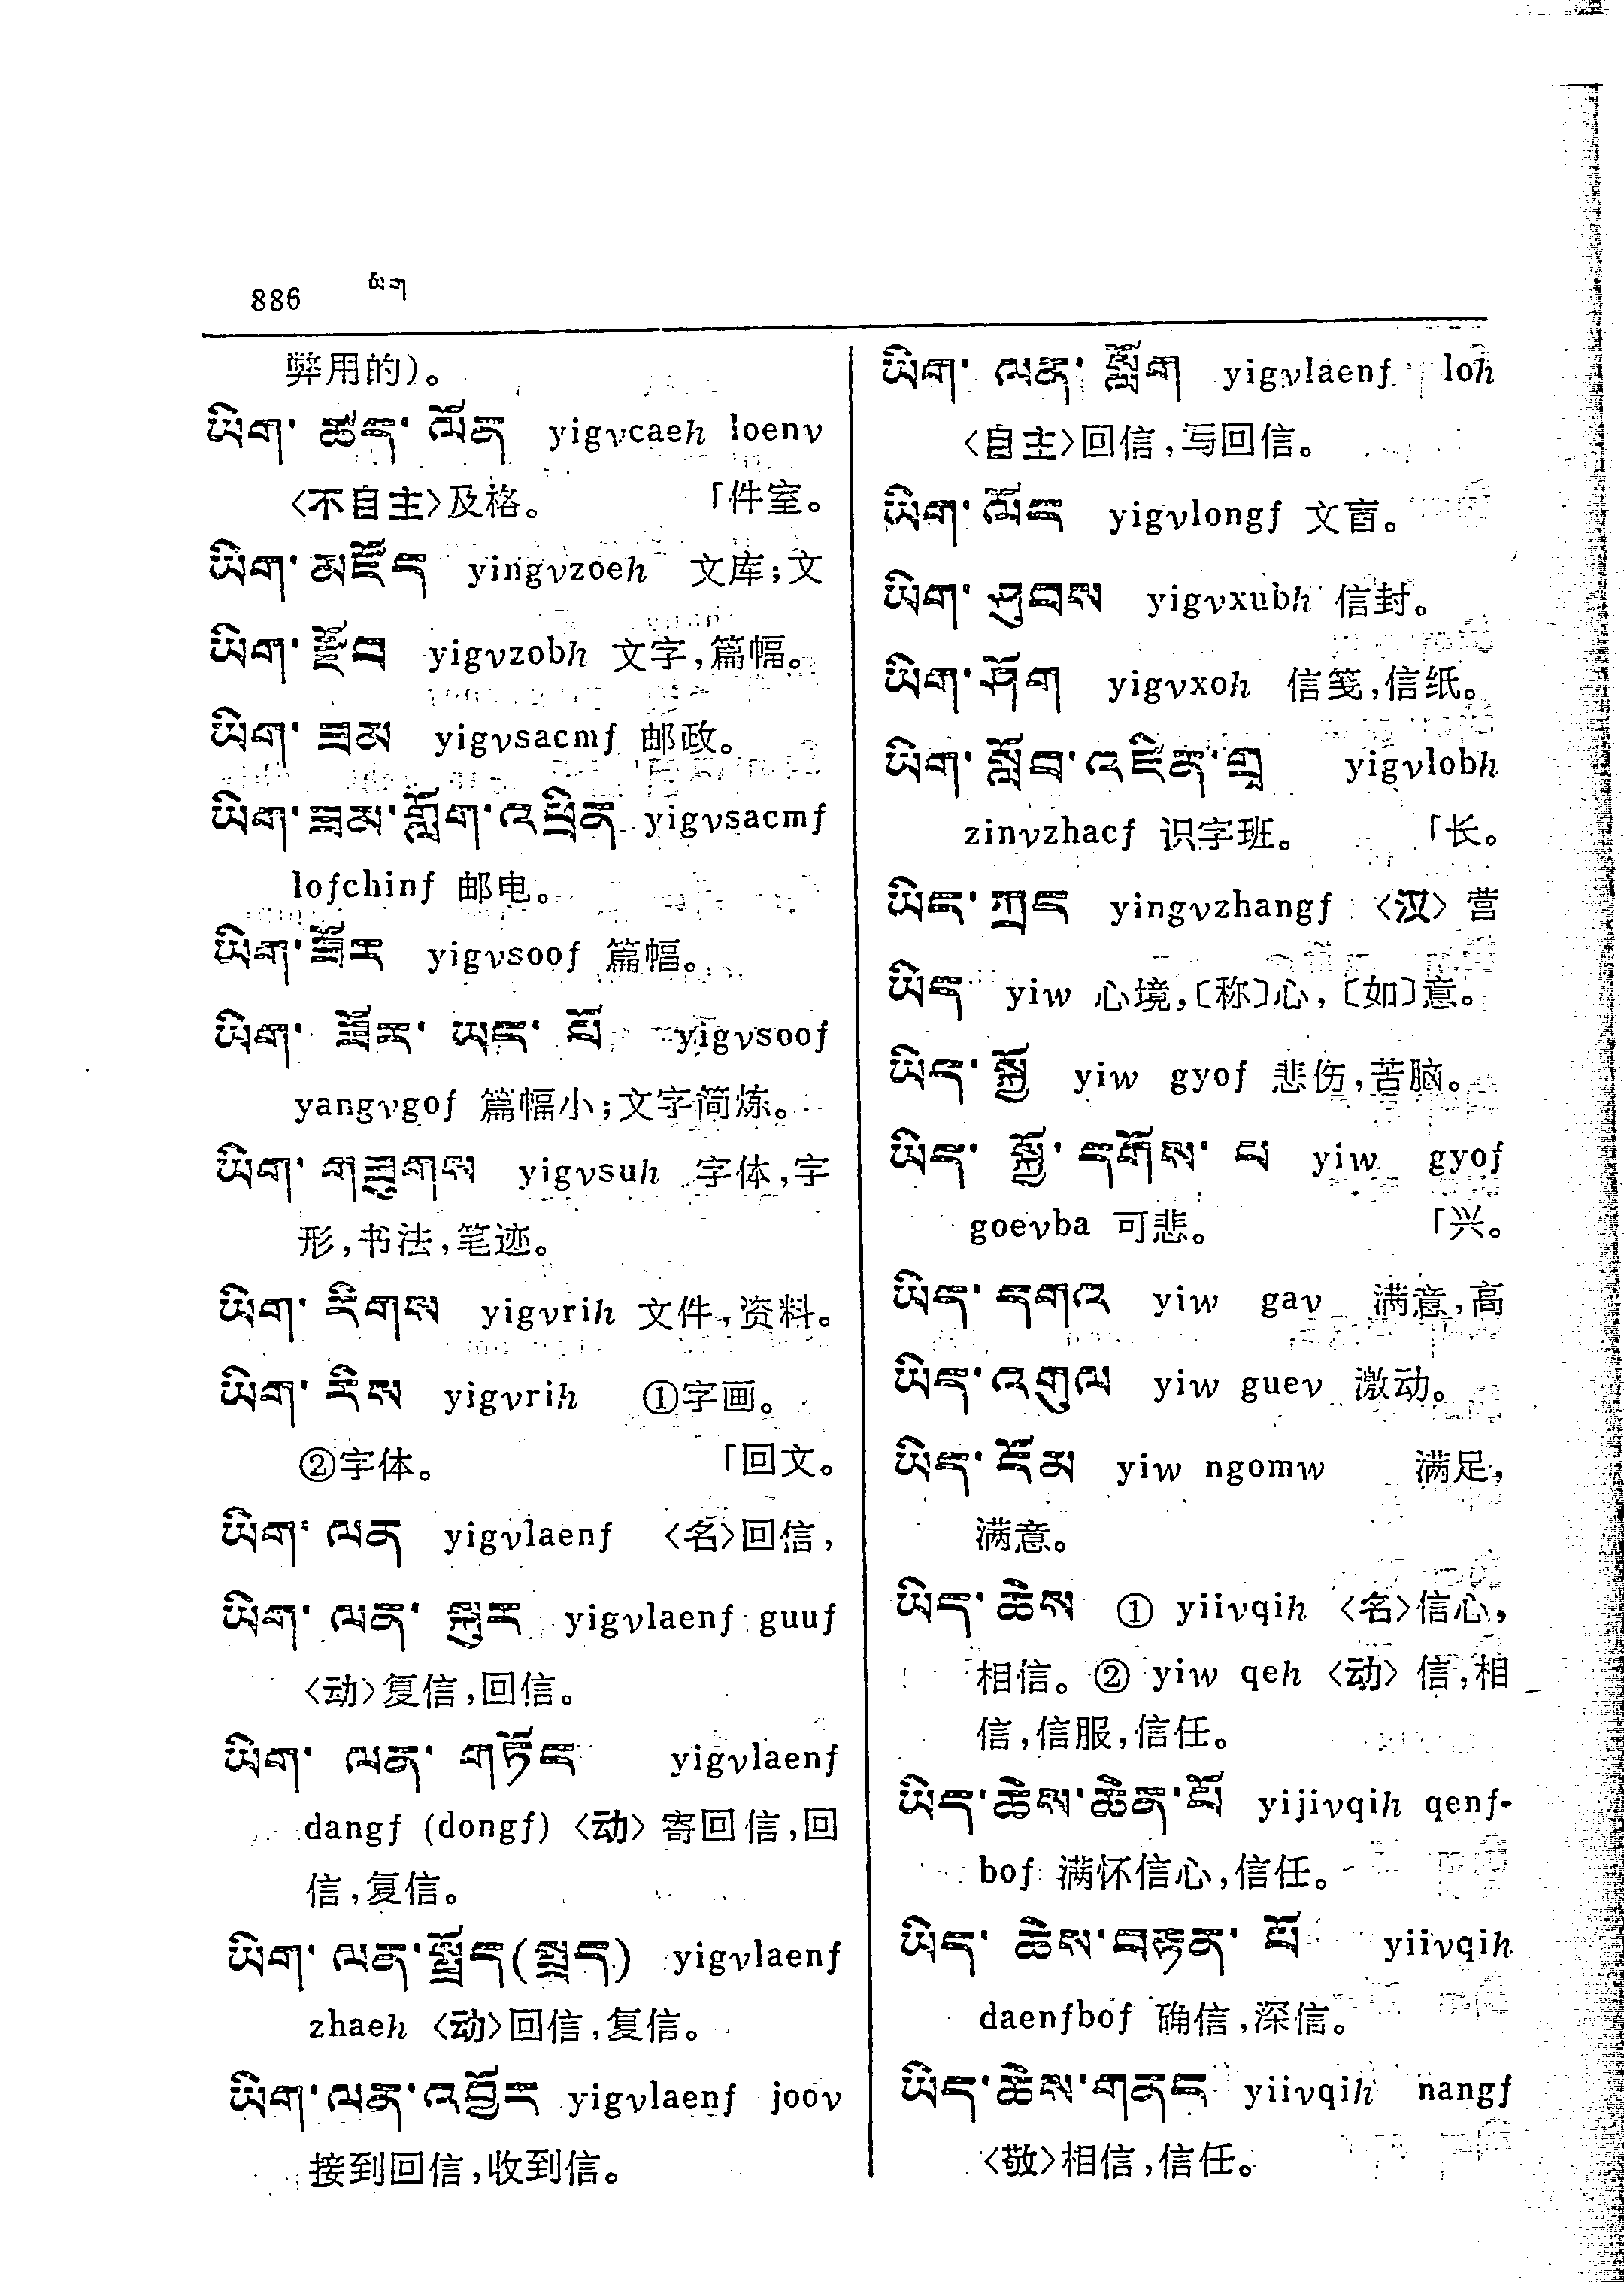 886 ཡིག
弊用的)。
ཡིག་ ཚད་ ལོན yigvcaeh loenv
〈不自主〉及格。 「件室。
ཡིག་མཛོད yingvzoeh 文库;文
ཡིག་རྫོབ yigvzobh 文字,篇幅。
ཡིག་ཟམ yigvsacmf 邮政。
ཡིག་ཟམ་གློག་འཕྲིན yigvsacmf
lofchinf 邮电。
ཡིག་ཟོར yigvsoof 篇幅。
ཡིག་ ཟོར་ ཡང་ པོ yigvsoof
yangvgof 篇幅小;文字简炼。
ཡིག་ གཟུགས yigvsuh 字体,字
形,书法,笔迹。
ཡིག་ རིགས yigvrih 文件,资料。
ཡིག་ རིས yigvrih ①字画。
②字体。 「回文。
ཡིག་ ལན yigvlaenf 〈名〉回信,
ཡིག་ ལན་ སྐུར yigvlaenf guuf
〈动〉复信,回信。
ཡིག་ ལན་ གཏོང yigvlaenf
dangf (dongf) 〈动〉寄回信,回
信,复信。
ཡིག་ ལན་སྤྲོད(སྤྲད) yigvlaenf
zhaeh 〈动〉回信,复信。
ཡིག་ལན་འབྱོར yigvlaenf joov
接到回信,收到信。
ཡིག་ ལན་ སློག yigvlaenf loh
〈自主〉回信,写回信。
ཡིག་ལོང yigvlongf 文盲。
ཡིག་ཤུབས yigvxubh 信封。
ཡིག་ཤོག yigvxoh 信笺,信纸。
ཡིག་སློབ་འཛིན་གྲྭ yigvlobh
zinvzhacf 识字班。 「长。
ཡིང་ཀྲང yingvzhangf 〈汉〉 营
ཡིད yiw 心境,〔称〕心,〔如〕意。
ཡིད་སྐྱོ yiw gyof 悲伤,苦脑。
ཡིད་ སྐྱོ་ དགོས་ པ yiw gyof
goevba 可悲。 「兴。
ཡིད་ དགའ yiw gav 满意,高
ཡིད་འགུལ yiw guev 激动。
ཡིད་ངོམ yiw ngomw 满足,
满意。
ཡིད་ཆེས ① yiivqih 〈名〉信心,
相信。② yiw qeh 〈动〉 信,相
信,信服,信任。
ཡིད་ཆེས་ཆེན་པོ yijivqih qenf-
bof 满怀信心,信任。
ཡིད་ ཆེས་བརྟན་ པོ yiivqih
daenfbof 确信,深信。
ཡིད་ཆེས་གནང yiivqih nangf
〈敬〉相信,信任。